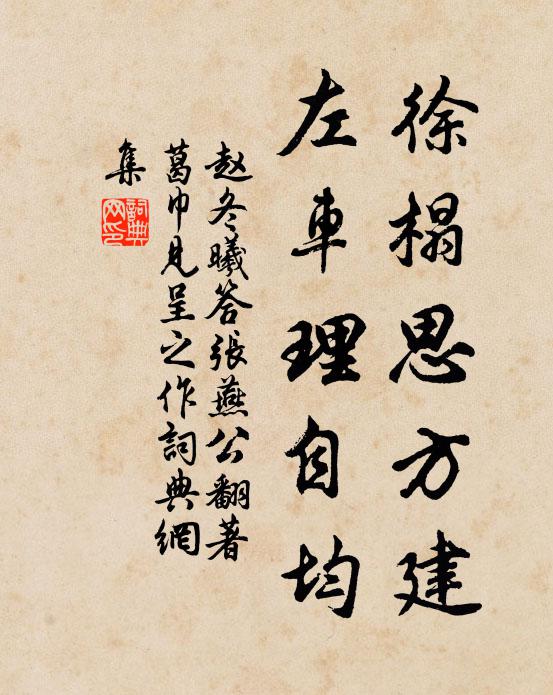 徐榻思方建
左車理自均
赵冬曦答張燕公翻著
葛巾見呈之作詞典網
集
詞典
网印